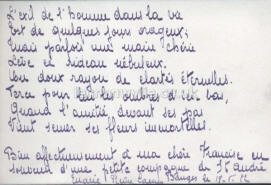 L'exil de l'homme dans la vie
Est de quelques jours orageux;
Mais parfois une main chérie
Lève un rideau nébuleux.
Un doux rayon de clartés éternelles
Perce pour lui les ombres d'ici bas,
Quand l'amitié devant ses pas
Vient semer ses fleurs immortelles.
Bien affectueusement à ma chère Francise en
souvenir d'une petite compagne de St André
Marie
Bauges le 18.5.12